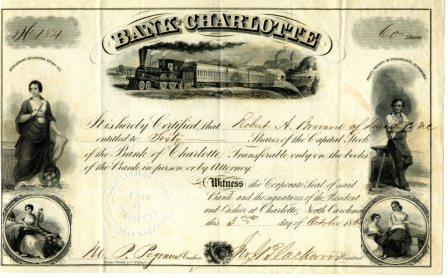 No 184
60 Shares
BANK OF CHARLOTTE
It is hereby Certified, that Robert A. Brevard of
entitled to Sixty Shares of the Capital Stock
of the Bank of Charlotte. Transferable only on the books
of the Bank in person or by Attorney.
Witness the Corporate Seal of said
Bank and the signatures of the President
and Cashier at Charlotte, North Carolina
this 3rd day of October
M. P. Pegram Cashier Jno J Blackwood President